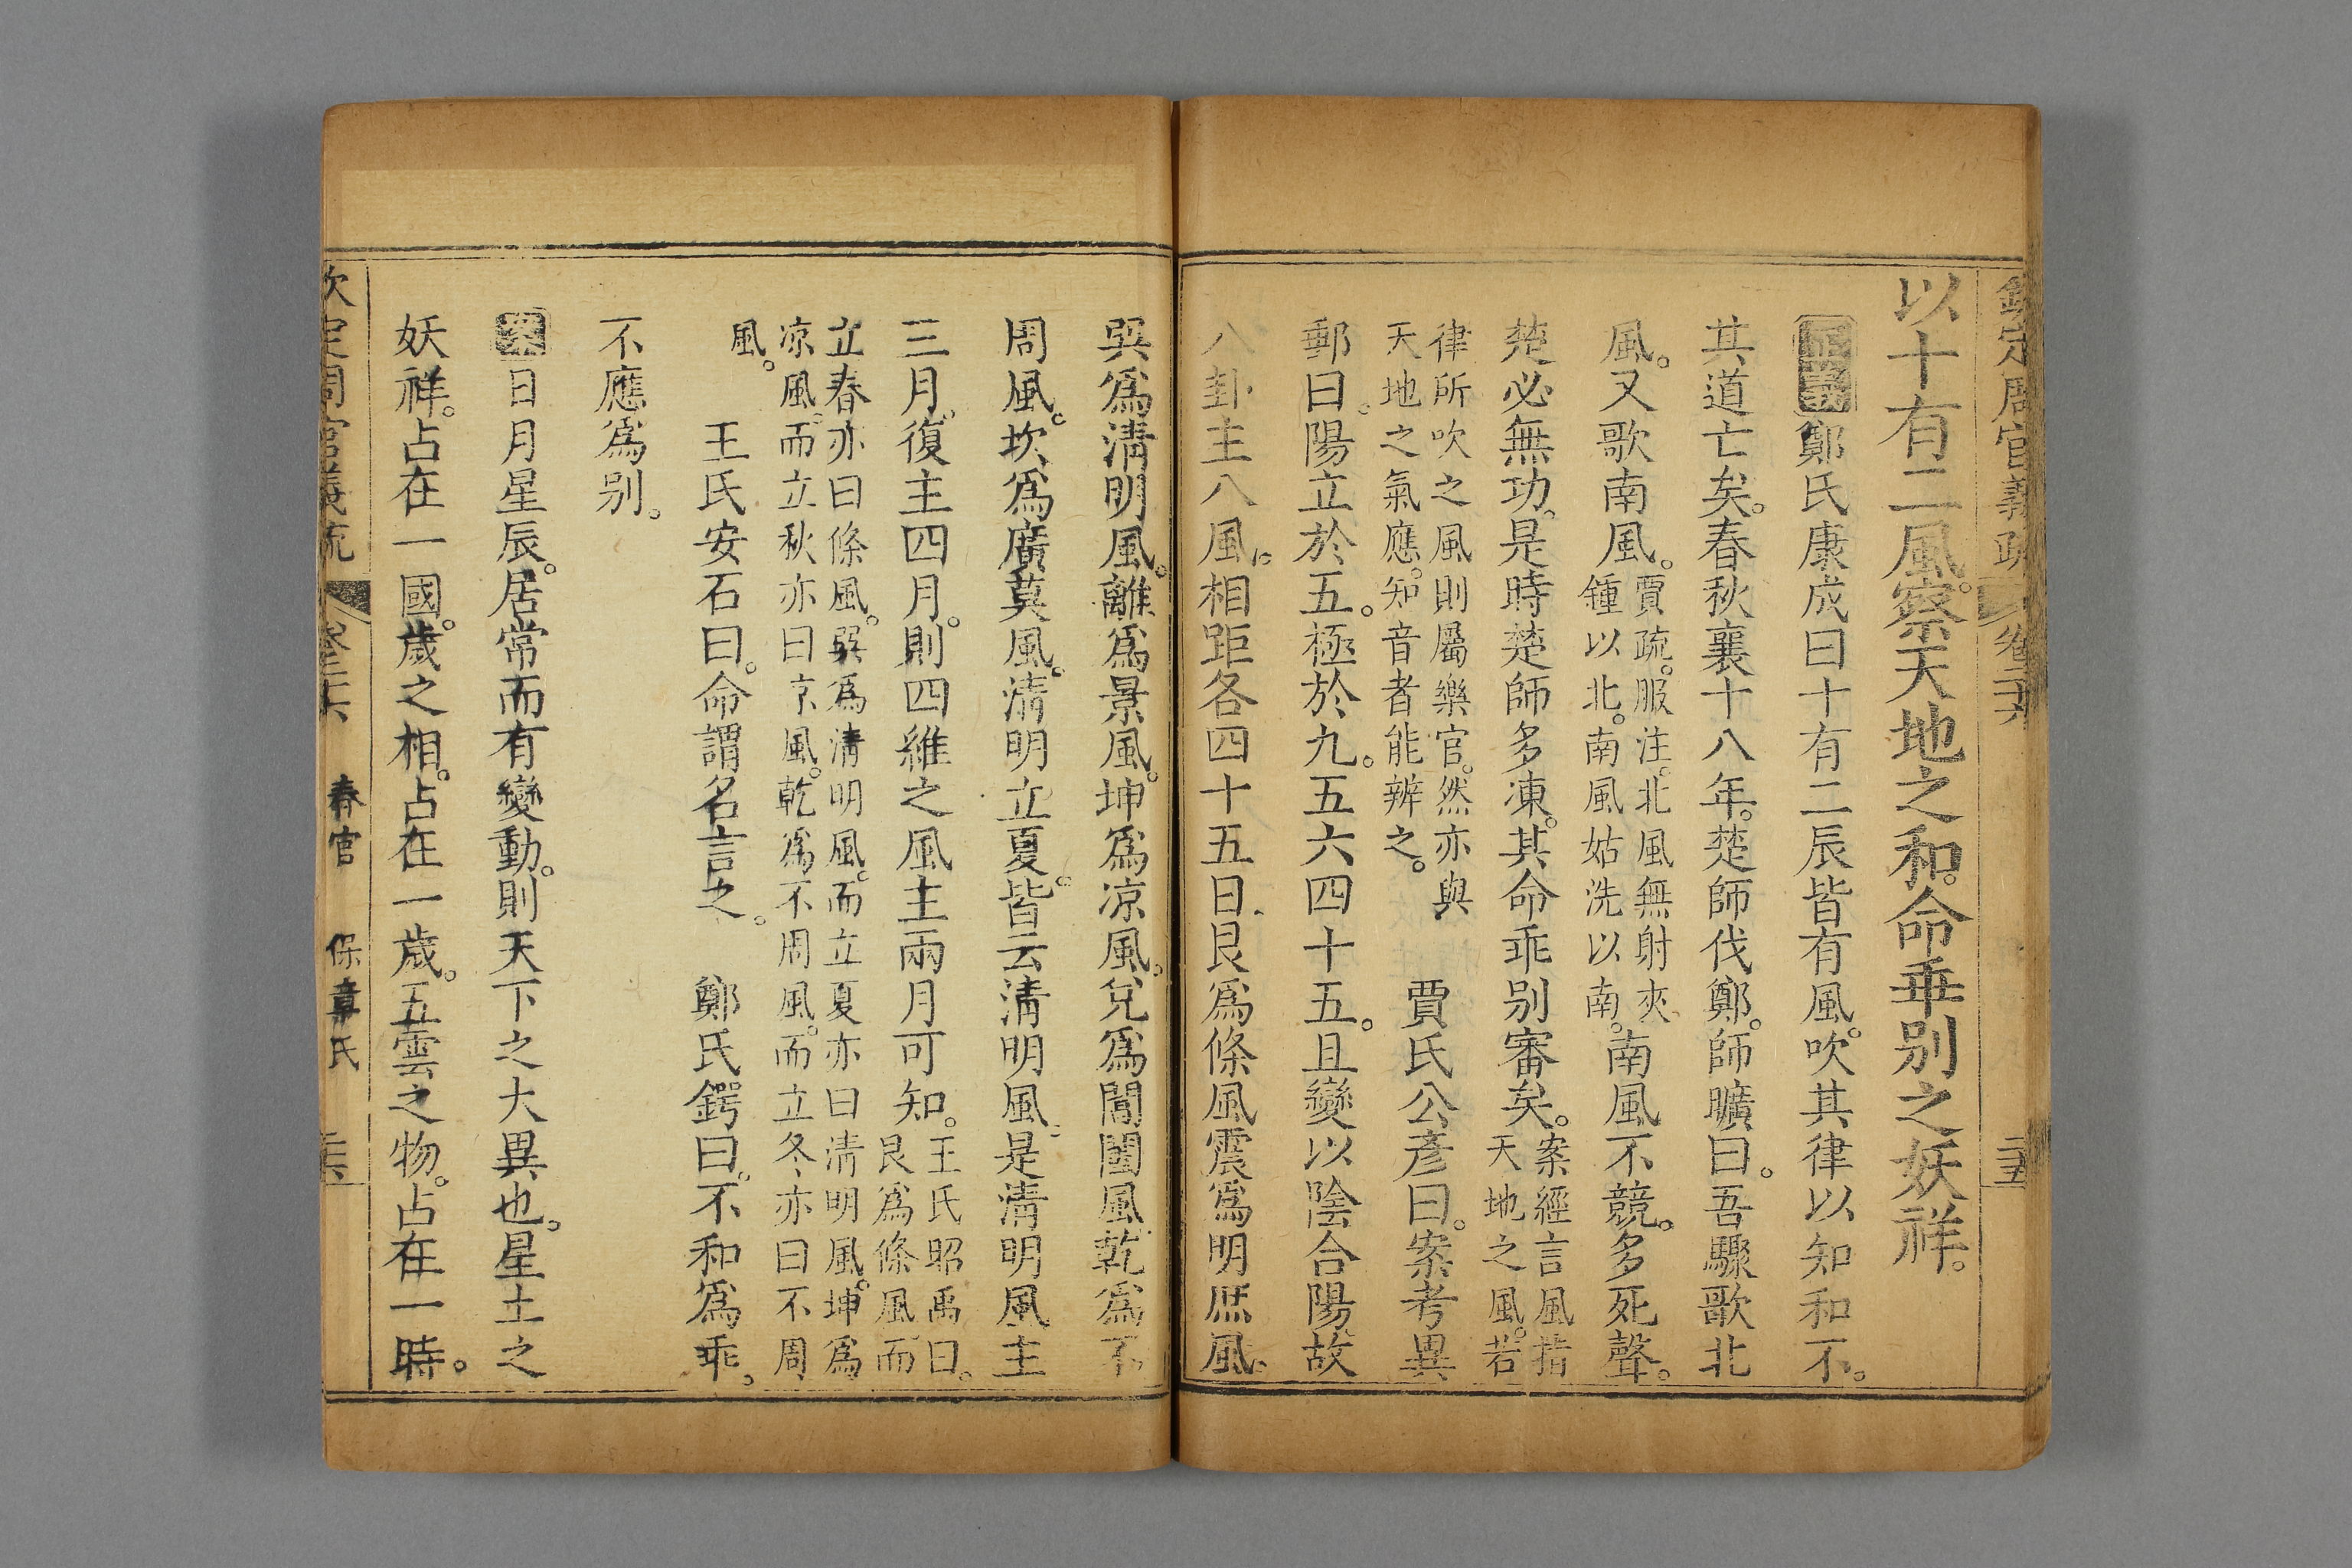 欽定周官義疏 卷二十六 二十五
以十有二風。察天地之和。命乖别之妖祥。
正義鄭氏康成曰十有二辰皆有風。吹其律以知和不。
其道亡矣。春秋襄十八年。楚師伐鄭。師曠曰。吾驟歌北
風。又歌南風。
賈疏。服注。北風無射夾
鍾以北。南風姑洗以南。
南風不競。多死聲。
楚必無功。是時楚師多凍。其命乖别審矣。
案經言風指
天地之風。若
律所吹之風則屬樂官。然亦與
天地之氣應。知音者能辨之。
賈氏公彥曰。案考異
郵曰。陽立於五。極於九。五六四十五。且變以陰合陽。故
八卦主八風。相距各四十五日。艮爲條風震爲明庶風。
巽爲清明風。離爲景風。坤爲凉風。兌爲閶闔風。乾爲不
周風。坎爲廣莫風。清明立夏。皆云清明風。是清明風主
三月。復主四月。則四維之風主兩月可知。
王氏昭禹曰。
艮爲條風。而
立春亦曰條風。巽爲清明風。而立夏亦曰清明風。坤爲
凉風。而立秋亦曰凉風。乾爲不周風。而立冬亦曰不周
風。
王氏安石曰。命謂名言之。 鄭氏鍔曰。不和爲乖。
不應爲别。
案日月星辰。居常而有變動。則天下之大異也。星土之
妖祥。占在一國。歲之相。占在一歲。五雲之物。占在一時。
欽定周官義疏 卷二十六 春官 保章氏 二十六